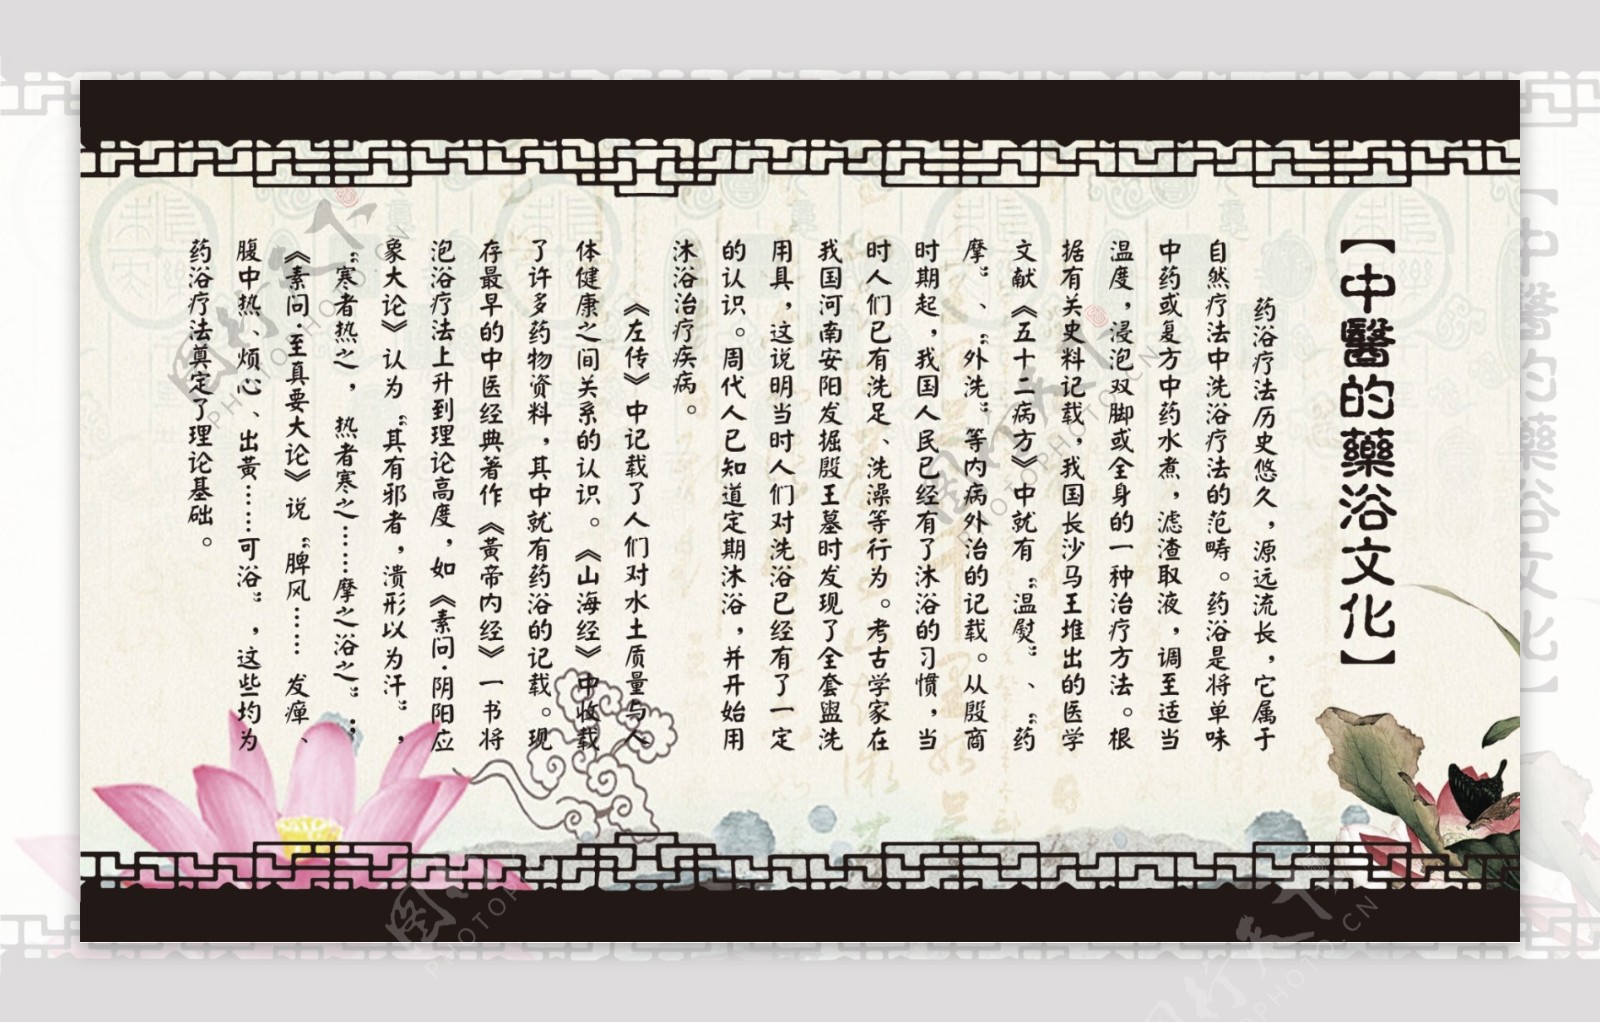 【中醫的藥浴文化】
药浴疗法历史悠久，源远流长，它属于
自然疗法中洗浴疗法的范畴。药浴是将单味
中药或复方中药水煮，滤渣取液，调至适当
温度，浸泡双脚或全身的一种治疗方法。根
据有关史料记载，我国长沙马王堆出的医学
文献《五十二病方》中就有“温熨”、“药
摩”、“外洗”等内病外治的记载。从殷商
时期起，我国人民已经有了沐浴的习惯，当
时人们已有洗足、洗澡等行为。考古学家在
我国河南安阳发掘殷王墓时发现了全套盥洗
用具，这说明当时人们对洗浴已经有了一定
的认识。周代人已知道定期沐浴，并开始用
沐浴治疗疾病。
《左传》中记载了人们对水土质量与人
体健康之间关系的认识。《山海经》中收载
了许多药物资料，其中就有药浴的记载。现
存最早的中医经典著作《黄帝内经》一书将
泡浴疗法上升到理论高度，如《素问·阴阳应
象大论》认为“其有邪者，渍形以为汗”，
“寒者热之，热者寒之……摩之浴之”；
《素问·至真要大论》说“脾风……发瘅、
腹中热、烦心、出黄……可浴”，这些均为
药浴疗法奠定了理论基础。